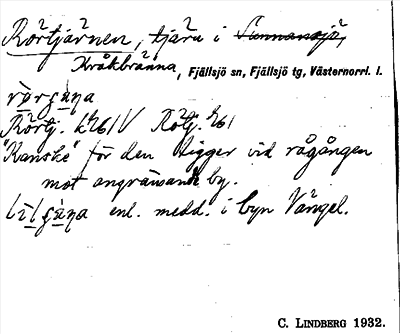 Rörtjärnen, tjärn i Sunnansjö,
Kråkbränna, Fjällsjö sn, Fjällsjö tg, Västernorrl. l.
Rörtj. Rötj.
"Kanske" för den ligger vid rågången
mot angränsande by.
enl. medd. i byn Vängel.
C. LINDBERG 1932.